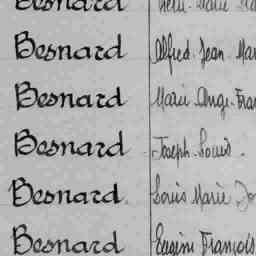 Besnard
Besnard Alfred Jean Mar
Besnard Marie Ange Fran
Besnard Joseph Louis.
Besnard. Louis Marie Jo
Besnard Eugène François